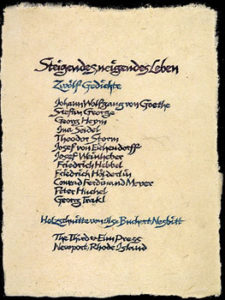 Steigendes, neigendes Leben
Zwölf Gedichte
Johann Wolfgang von Goethe
Stefan George
Georg Heym
Ina Seidel
Theodor Storm
Josef von Eichendorff
Josef Weinheber
Friedrich Hebbel
Friedrich Hölderlin
Conrad Ferdinand Meyer
Peter Huchel
Georg Trakl
Holzschnitte von Ilse Buchert Nesbitt
The Third & Elm Press
Newport, Rhode Island